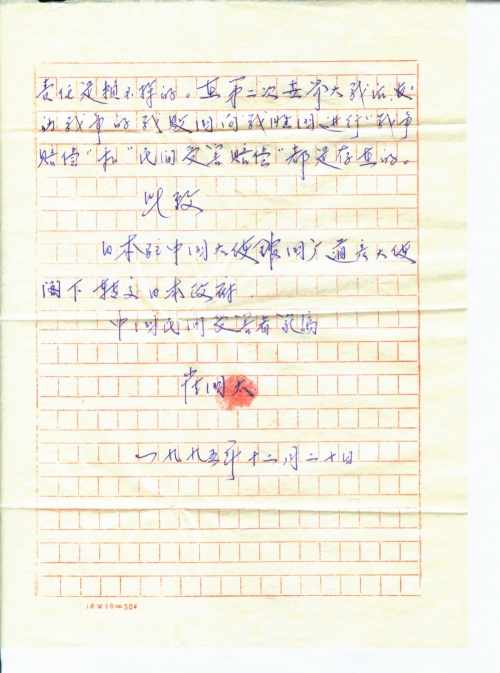 责任是赖不掉的。在第二次世界大战后,发
动战争的战败国向战胜国进行"战争
赔偿"和"民间受害赔偿"都是存在的。
此致
日本驻中国大使馆国广道彦大使
阁下转交日本政府.
中国民间受害者家属
崔国太
一九九五年十二月二十日
16×19=304